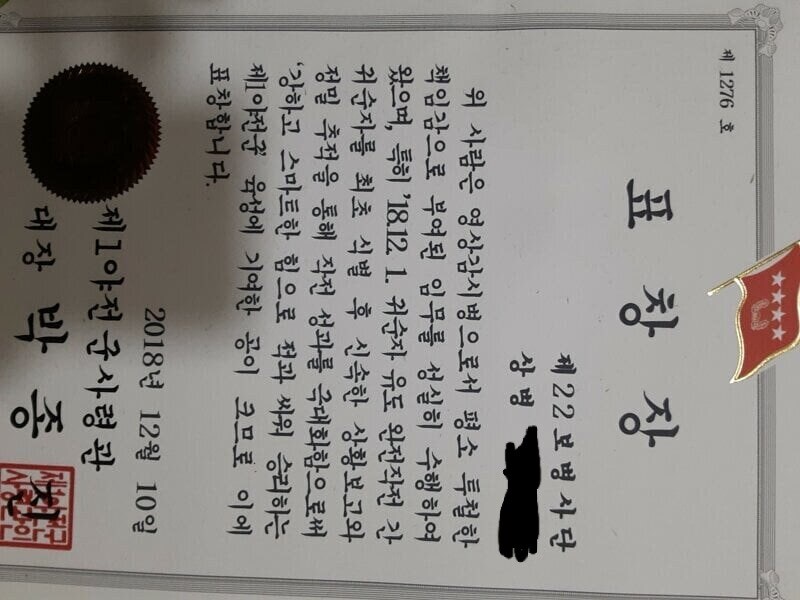 제 1276 호
표 창 장
제22보병사단
상병
위 사람은 영상감시병으로서 평소 투철한
책임감으로 부여된 임무를 성실히 수행하여
왔으며, 특히 '18.12. 1. 귀순자 유도 완전작전 간
귀순자를 최초 식별 후 신속한 상황보고와
정밀 추적을 통해 작전 성과를 극대화함으로써
'강하고 스마트한 힘으로 적과 싸워 승리하는
제1야전군' 육성에 기여한 공이 크므로 이에
표창합니다.
2018년 12월 10일
제1야전군사령관
대장 박 종 진